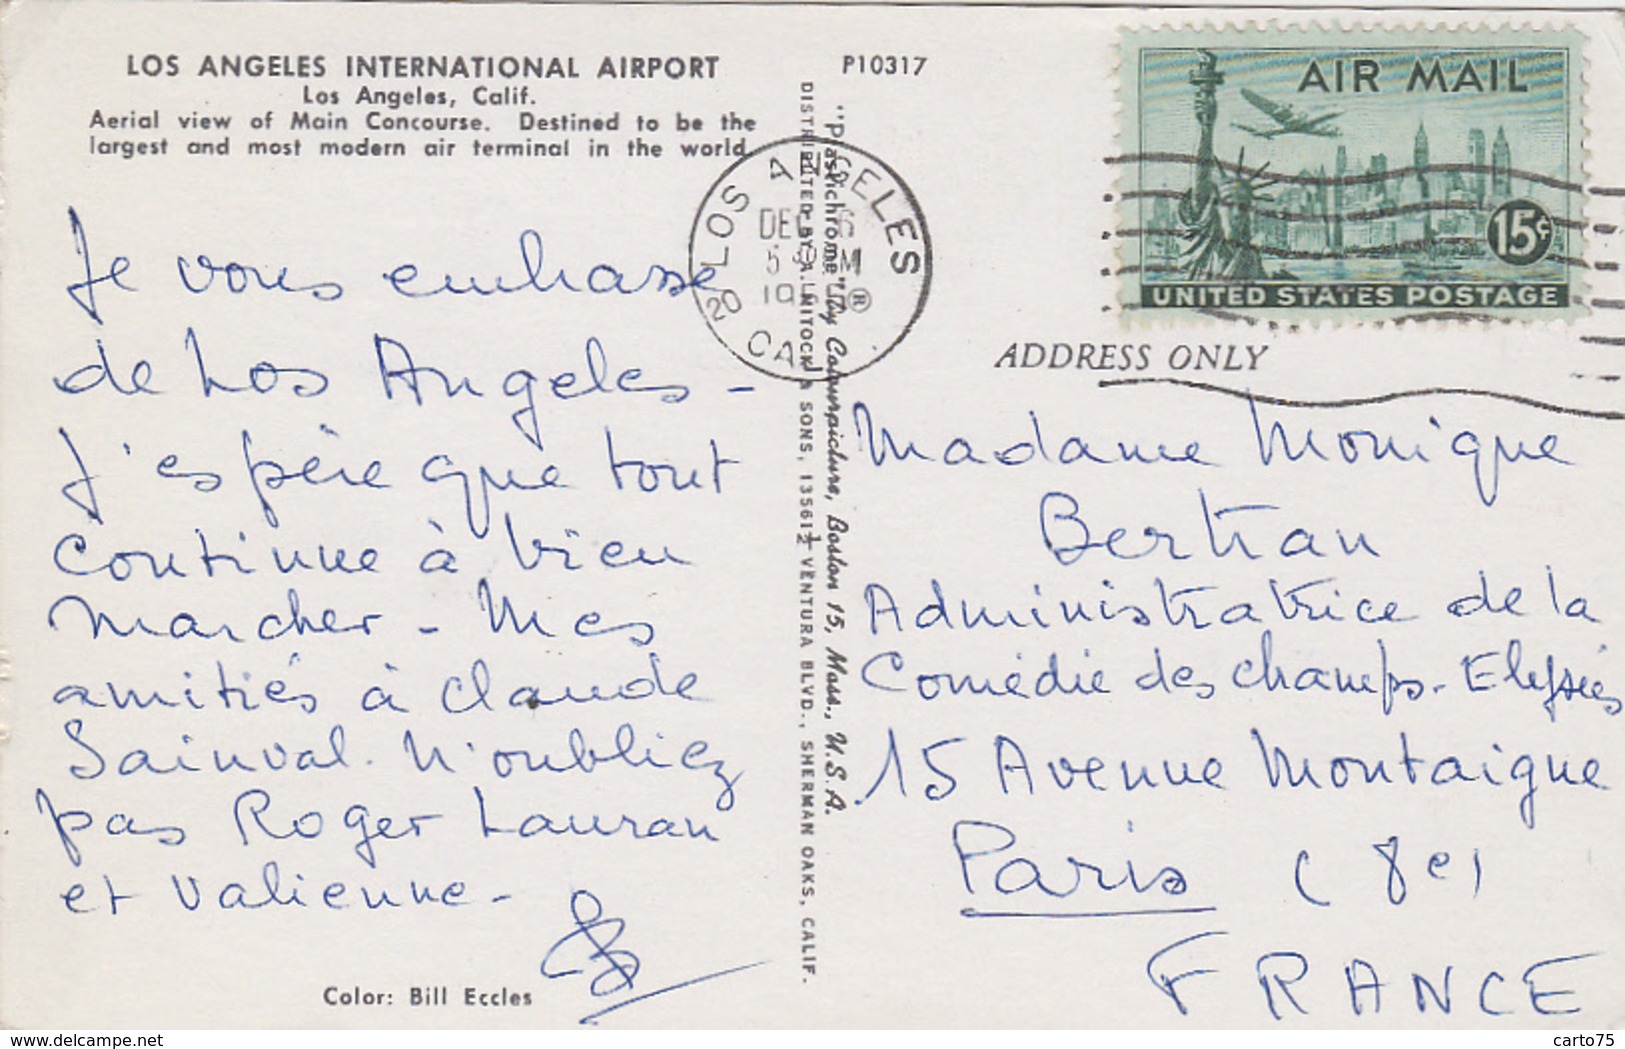 LOS ANGELES INTERNATIONAL AIRPORT
Los Angeles, Calif.
Aerial view of Main Concourse. Destined to be the
largest and most modern air terminal in the world.
P10317
Je vous embrasse
de Los Angeles -
J'espère que tout
continue à bien
marcher - Mes
amitiés à Claude
Sainval. N'oubliez
pas Roger Lauran
et Valienne -
Color: Bill Eccles
"Plastichrome" ® by Colourpicture, Boston 15, Mass., U.S.A.
DISTRIBUTED BY A. MITOCK & SONS, 13561½ VENTURA BLVD., SHERMAN OAKS, CALIF.
LOS ANGELES
DEC 6
20
AIR MAIL
15¢
UNITED STATES POSTAGE
ADDRESS ONLY
Madame Monique
Bertran
Administratrice de la
Comédie des Champs-Elysées
15 Avenue Montaigne
Paris (8e)
FRANCE
www.delcampe.net
carto75